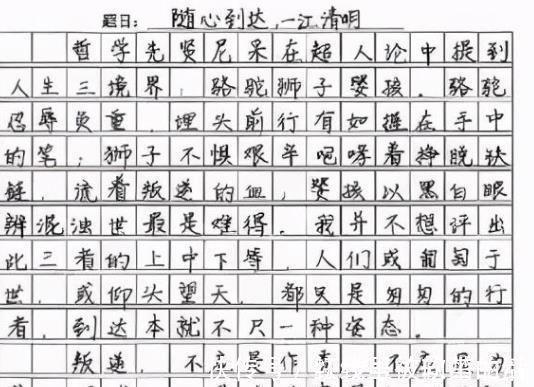 题目：随心到达，一江清明
哲学先贤尼采在超人论中提到
人生三境界，骆驼狮子婴孩。骆驼
忍辱负重，埋头前行有如握在手中
的笔；狮子不惧艰辛咆哮着挣脱铁
链，流着叛逆的血，婴孩以黑白眼
辨混浊世最是难得。我并不想评出
此三者的上中下等，人们或匍匐于
世，或仰头望天，都只是匆匆的行
者，到达本就不只一种姿态。
叛逆，不